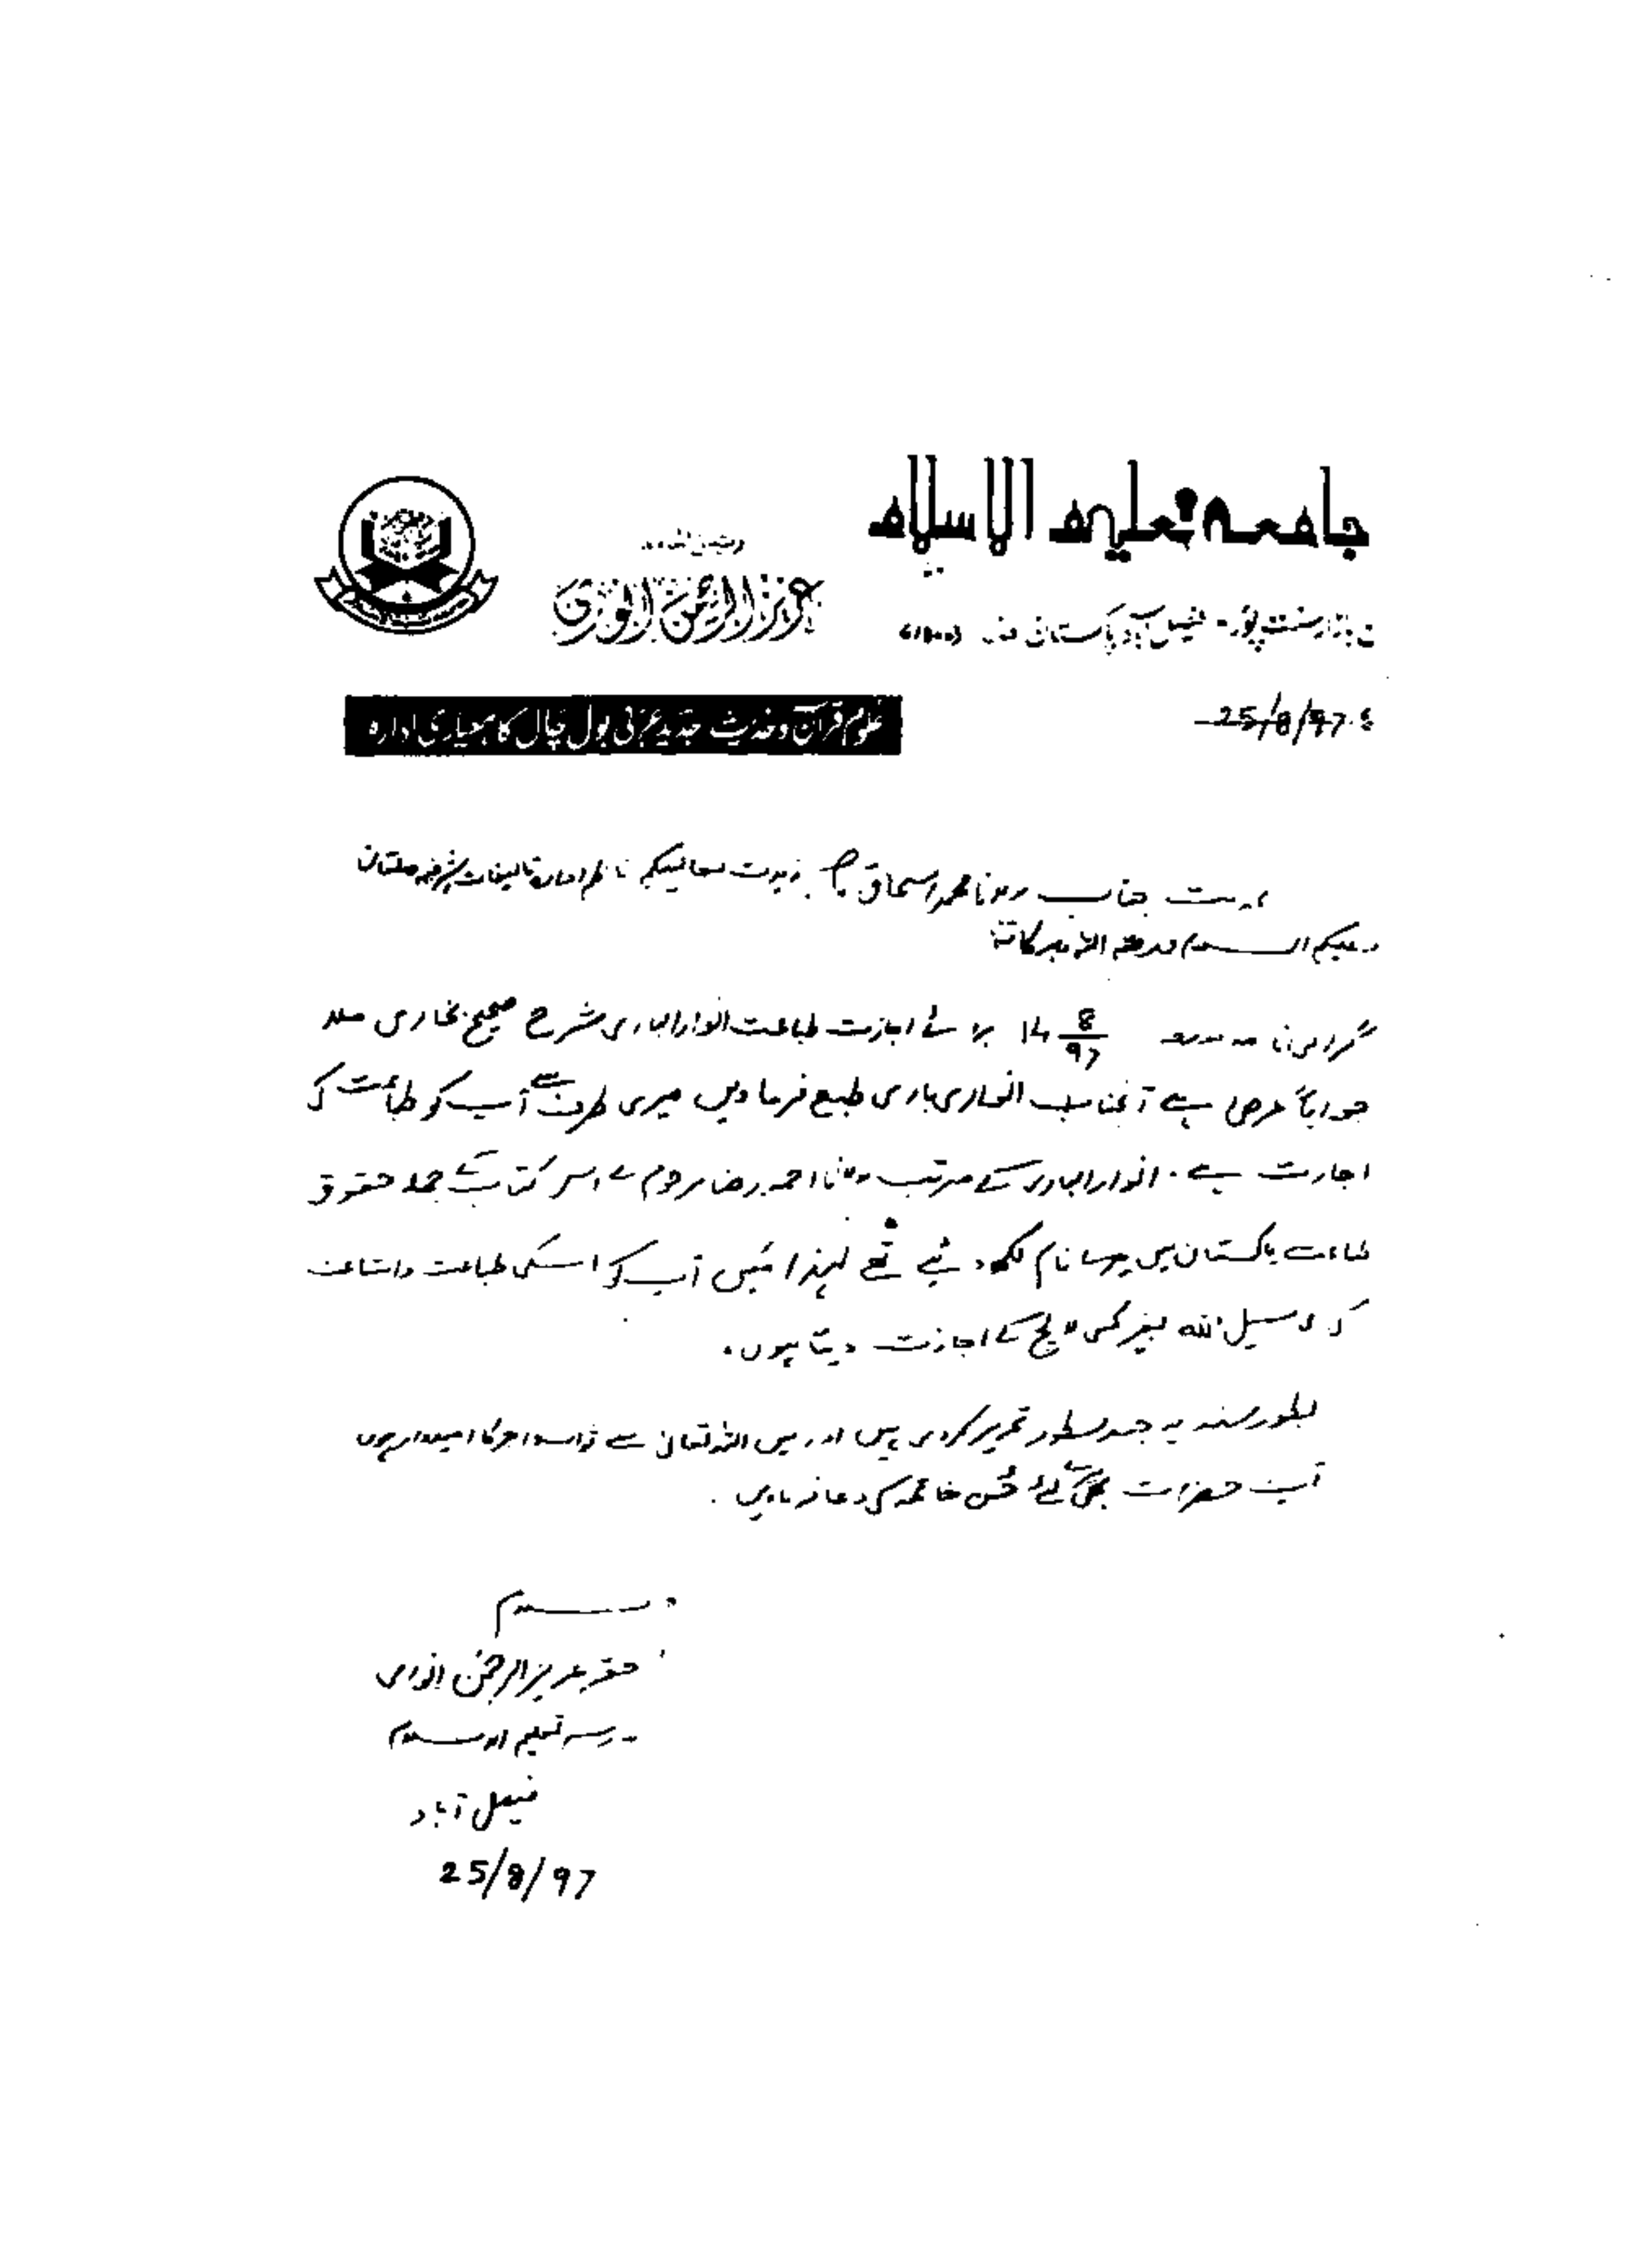 جامعہ تعلیم الاسلام
عزیز الرحمن انوری
بازار سنت پورہ - فیصل آباد پاکستان فون
25/8/97
علوم قرآن و حدیث جدید عربی بول چال کا معیاری ادارہ
جناب مولانا محمد اسحاق زیدت معالیکم ناظم ادارہ تالیفات اشرفیہ ملتان
وعلیکم السلام ورحمۃ اللہ وبرکاتہ
گرامی نامہ 14 8/97 برائے اجازت طباعت انوار الباری شرح صحیح بخاری ملا
جواباً عرض ہے آنجناب انوار الباری طبع فرما دیں میری طرف سے آپ کو طباعت کی
اجازت ہے۔ انوار الباری کے مرتب مولانا احمد رضا مرحوم نے اس کتاب کے جملہ حقوق
طباعت پاکستان میں میرے نام لکھ دئیے تھے لہذا میں آپ کو اسکی طباعت واشاعت
کی فی سبیل اللہ بغیر کسی لالچ کے اجازت دیتا ہوں۔
بطور سند یہ چند سطور تحریر کر دی ہیں اور میں اللہ تعالیٰ سے ثواب و اجر کا امیدوار ہوں
آپ حضرات بھی میرے لئے حسن خاتمہ کی دعا فرماویں۔
والسلام
احقر عزیز الرحمن انوری
مدرسہ تعلیم الاسلام
فیصل آباد
25/8/97